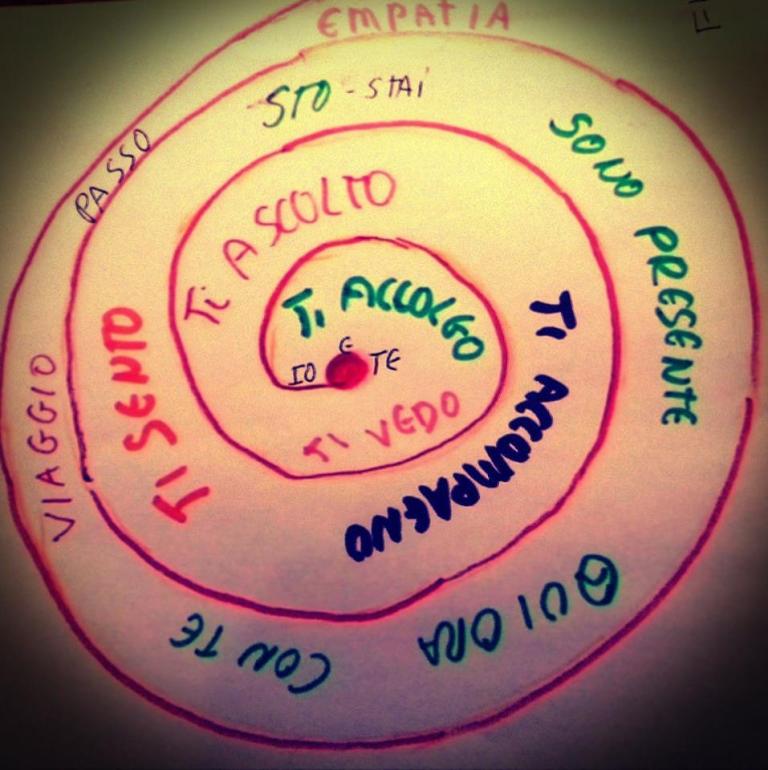 IO E TE
TI ACCOLGO
TI VEDO
TI ASCOLTO
TI ACCOMPAGNO
TI SENTO
STO - STAI
SONO PRESENTE
QUI ORA
CON TE
VIAGGIO
PASSO
EMPATIA